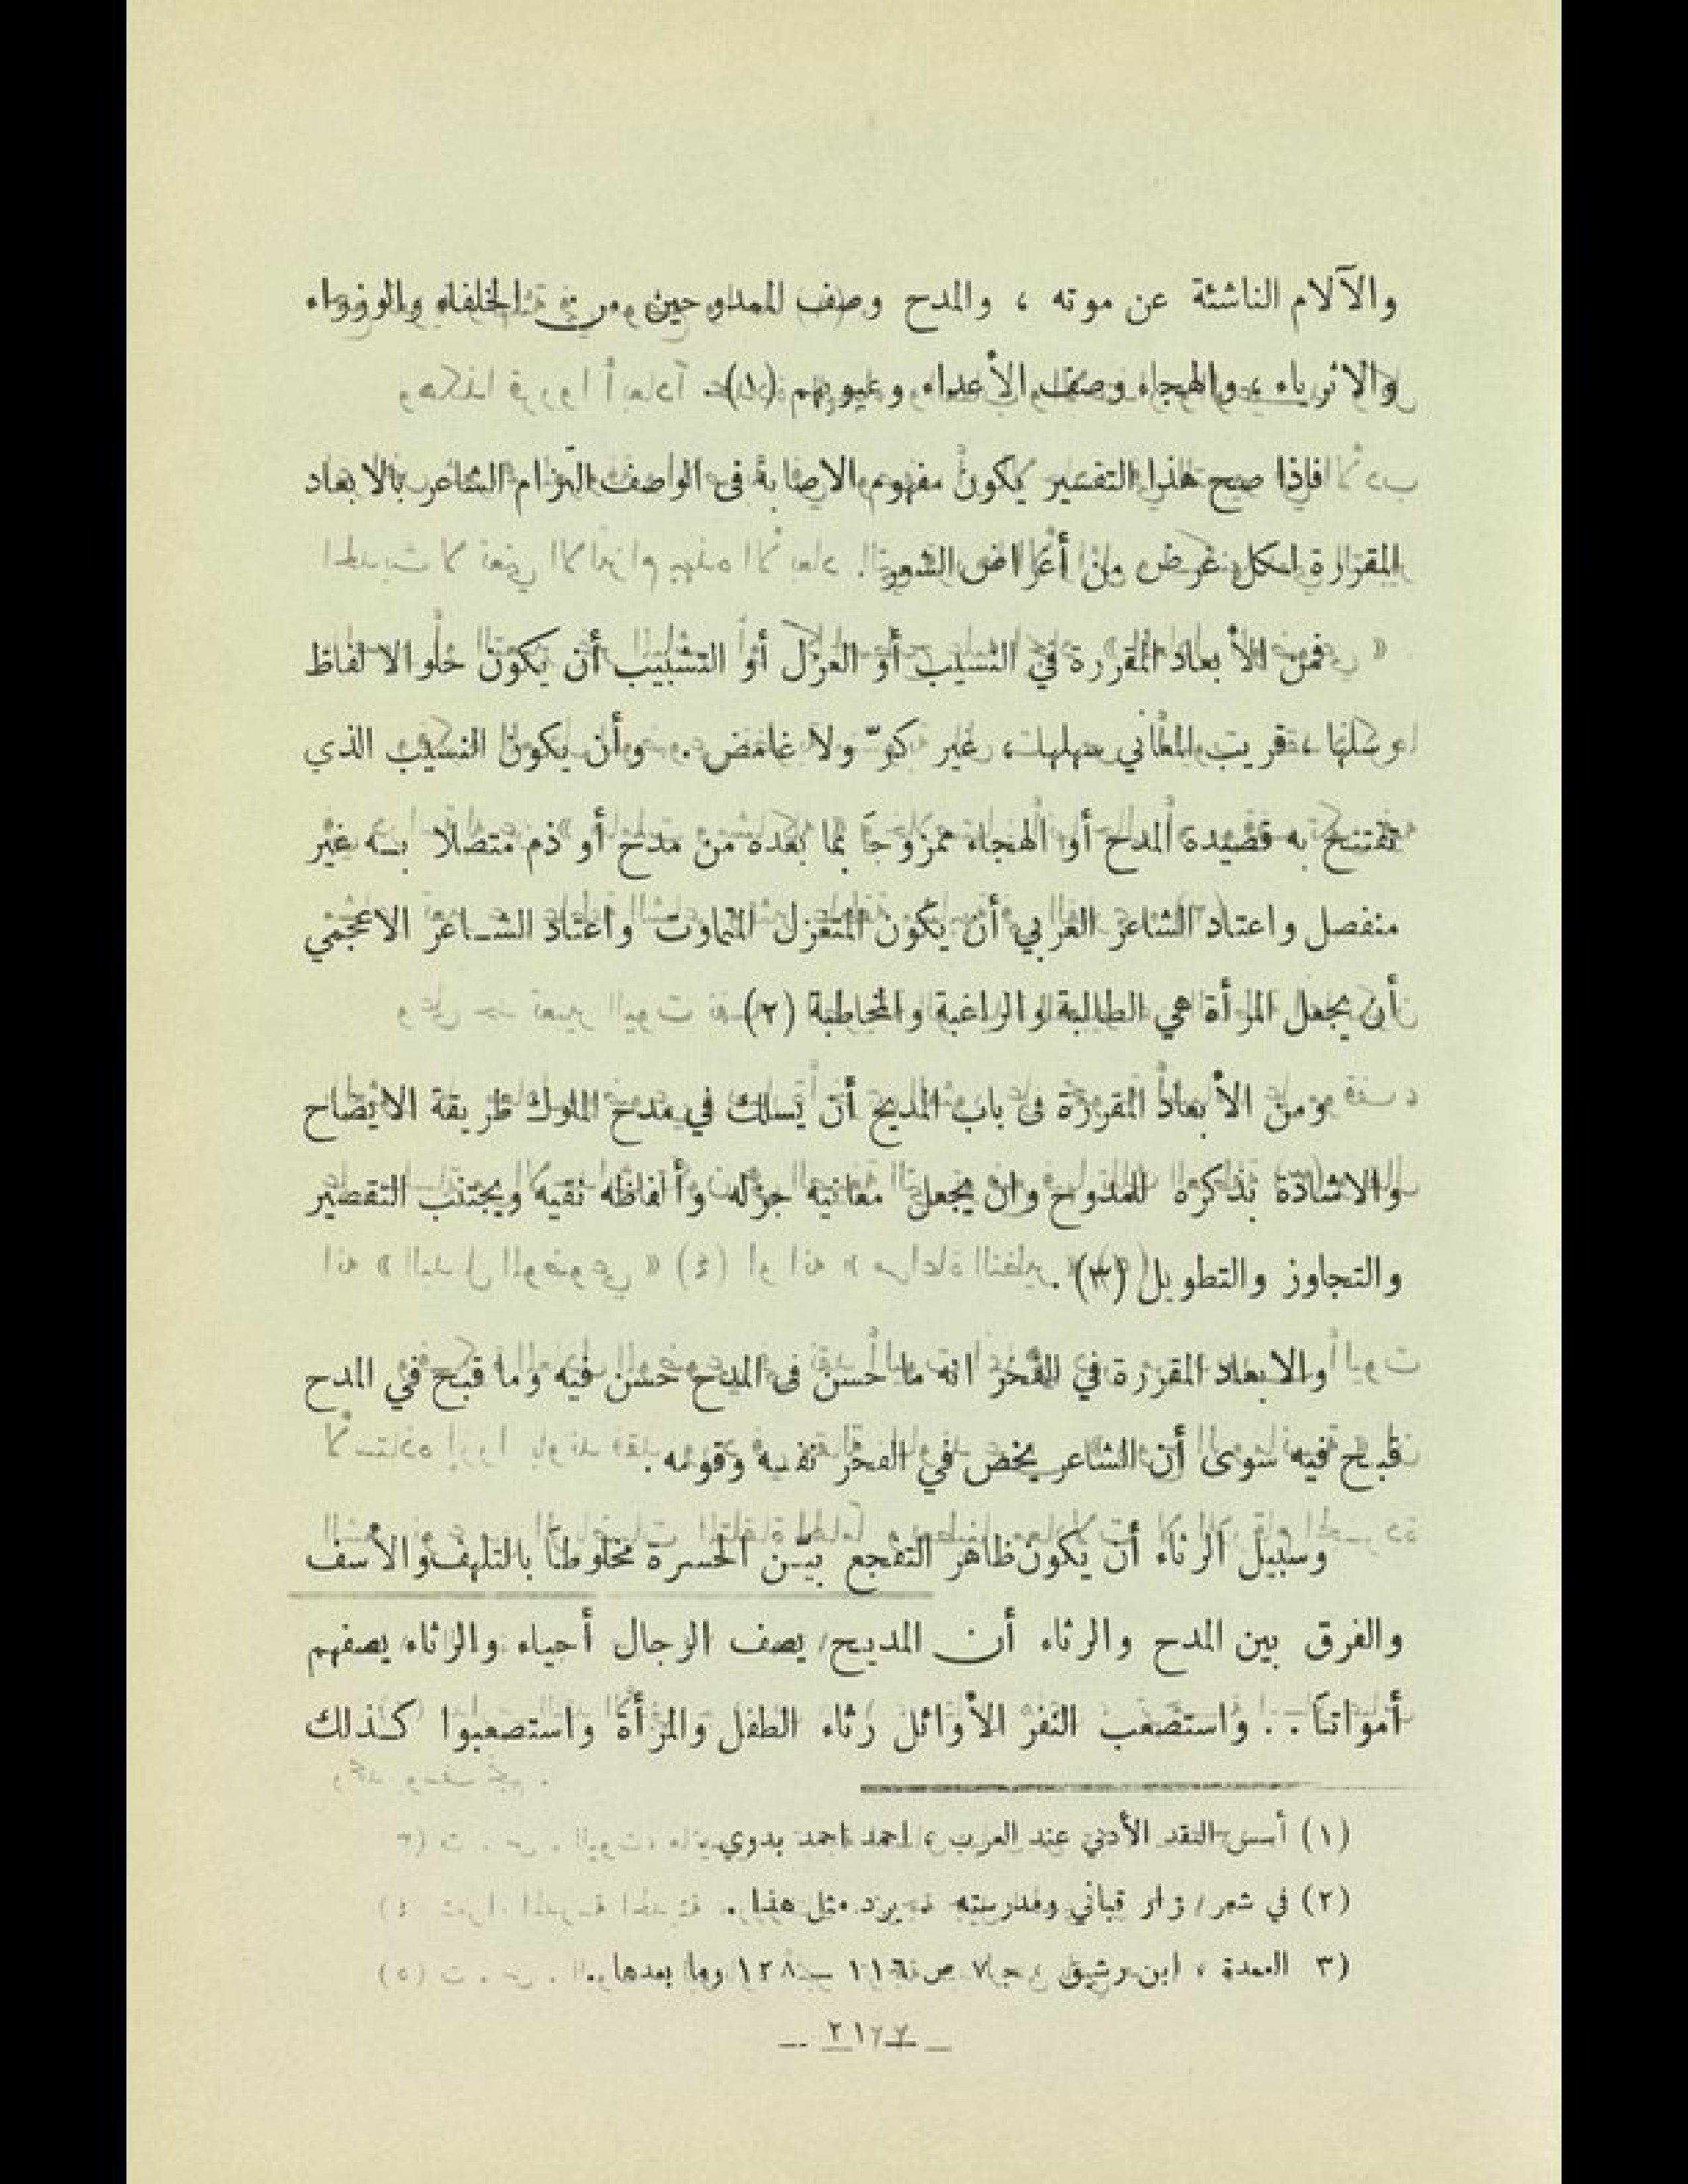 والآلام الناشئة عن موته ، والمدح وصف الممدوحين من الخلفاء والوزراء
والاثرياء ، والهجاء وصف الأعداء وعيوبهم (١) .
فاذا صح هذا التفسير يكون مفهوم الاصابة فى الوصف التزام الشاعر بالابعاد
المقررة لكل غرض من أغراض الشعر .
فمن الأبعاد المقررة في النسيب أو الغزل أو التشبيب أن يكون حلو الالفاظ
رسلها ، قريب المعاني سهلها ، غير كزّ ولا غامض . وأن يكون النسيب الذي
تفتتح به قصيدة المدح أو الهجاء ممزوجاً بما بعده من مدح أو ذم متصلا به غير
منفصل واعتاد الشاعر العربي أن يكون المتغزل المتماوت واعتاد الشاعر الاعجمي
أن يجعل المرأة هي الطالبة والراغبة والمخاطبة (٢)
ومن الأبعاد المقررة فى باب المديح أن يسلك في مدح الملوك طريقة الايضاح
والاشادة بذكره للمدوح وان يجعل معانيه جزله وألفاظه نقيه ويجتنب التقصير
والتجاوز والتطويل (٣) .
والابعاد المقررة في الفخر انه ما حسن فى المدح حسن فيه وما قبح في المدح
قبح فيه سوى أن الشاعر يخص في الفخر نفسه وقومه .
وسبيل الرثاء أن يكون ظاهر التفجع بيّن الحسرة مخلوطاً بالتلهف والأسف
والفرق بين المدح والرثاء أن المديح يصف الرجال أحياء والرثاء يصفهم
أمواتاً . . واستصعب النفر الأوائل رثاء الطفل والمرأة واستصعبوا كذلك
(١) أسس النقد الأدبي عند العرب ، احمد احمد بدوي
(٢) في شعر نزار قباني ومدرسته يرد مثل هذا .
(٣ العمدة ، ابن رشيق ج ص ١١٦ — ١٢٨ وما بعدها .